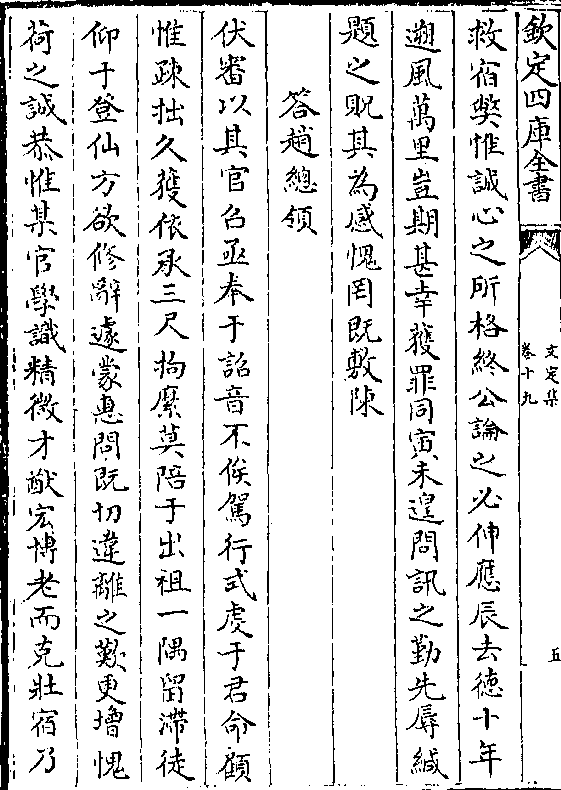 欽定四庫全書
文定集
卷十九
五
救宿獘惟誠心之所格終公論之必伸應辰去德十年
遡風萬里豈期甚幸獲罪同寅未遑問訊之勤先辱緘
題之貺其為感愧罔既敷陳
答趙總領
伏審以其官召亟奉于詔音不俟駕行式虔于君命顧
惟疎拙久獲依承三尺拘縻莫陪于出祖一隅留滯徒
仰于登仙方欲修辭遽蒙惠問既切違離之歎更增愧
荷之誠恭惟某官學識精微才猷宏博老而克壯宿乃